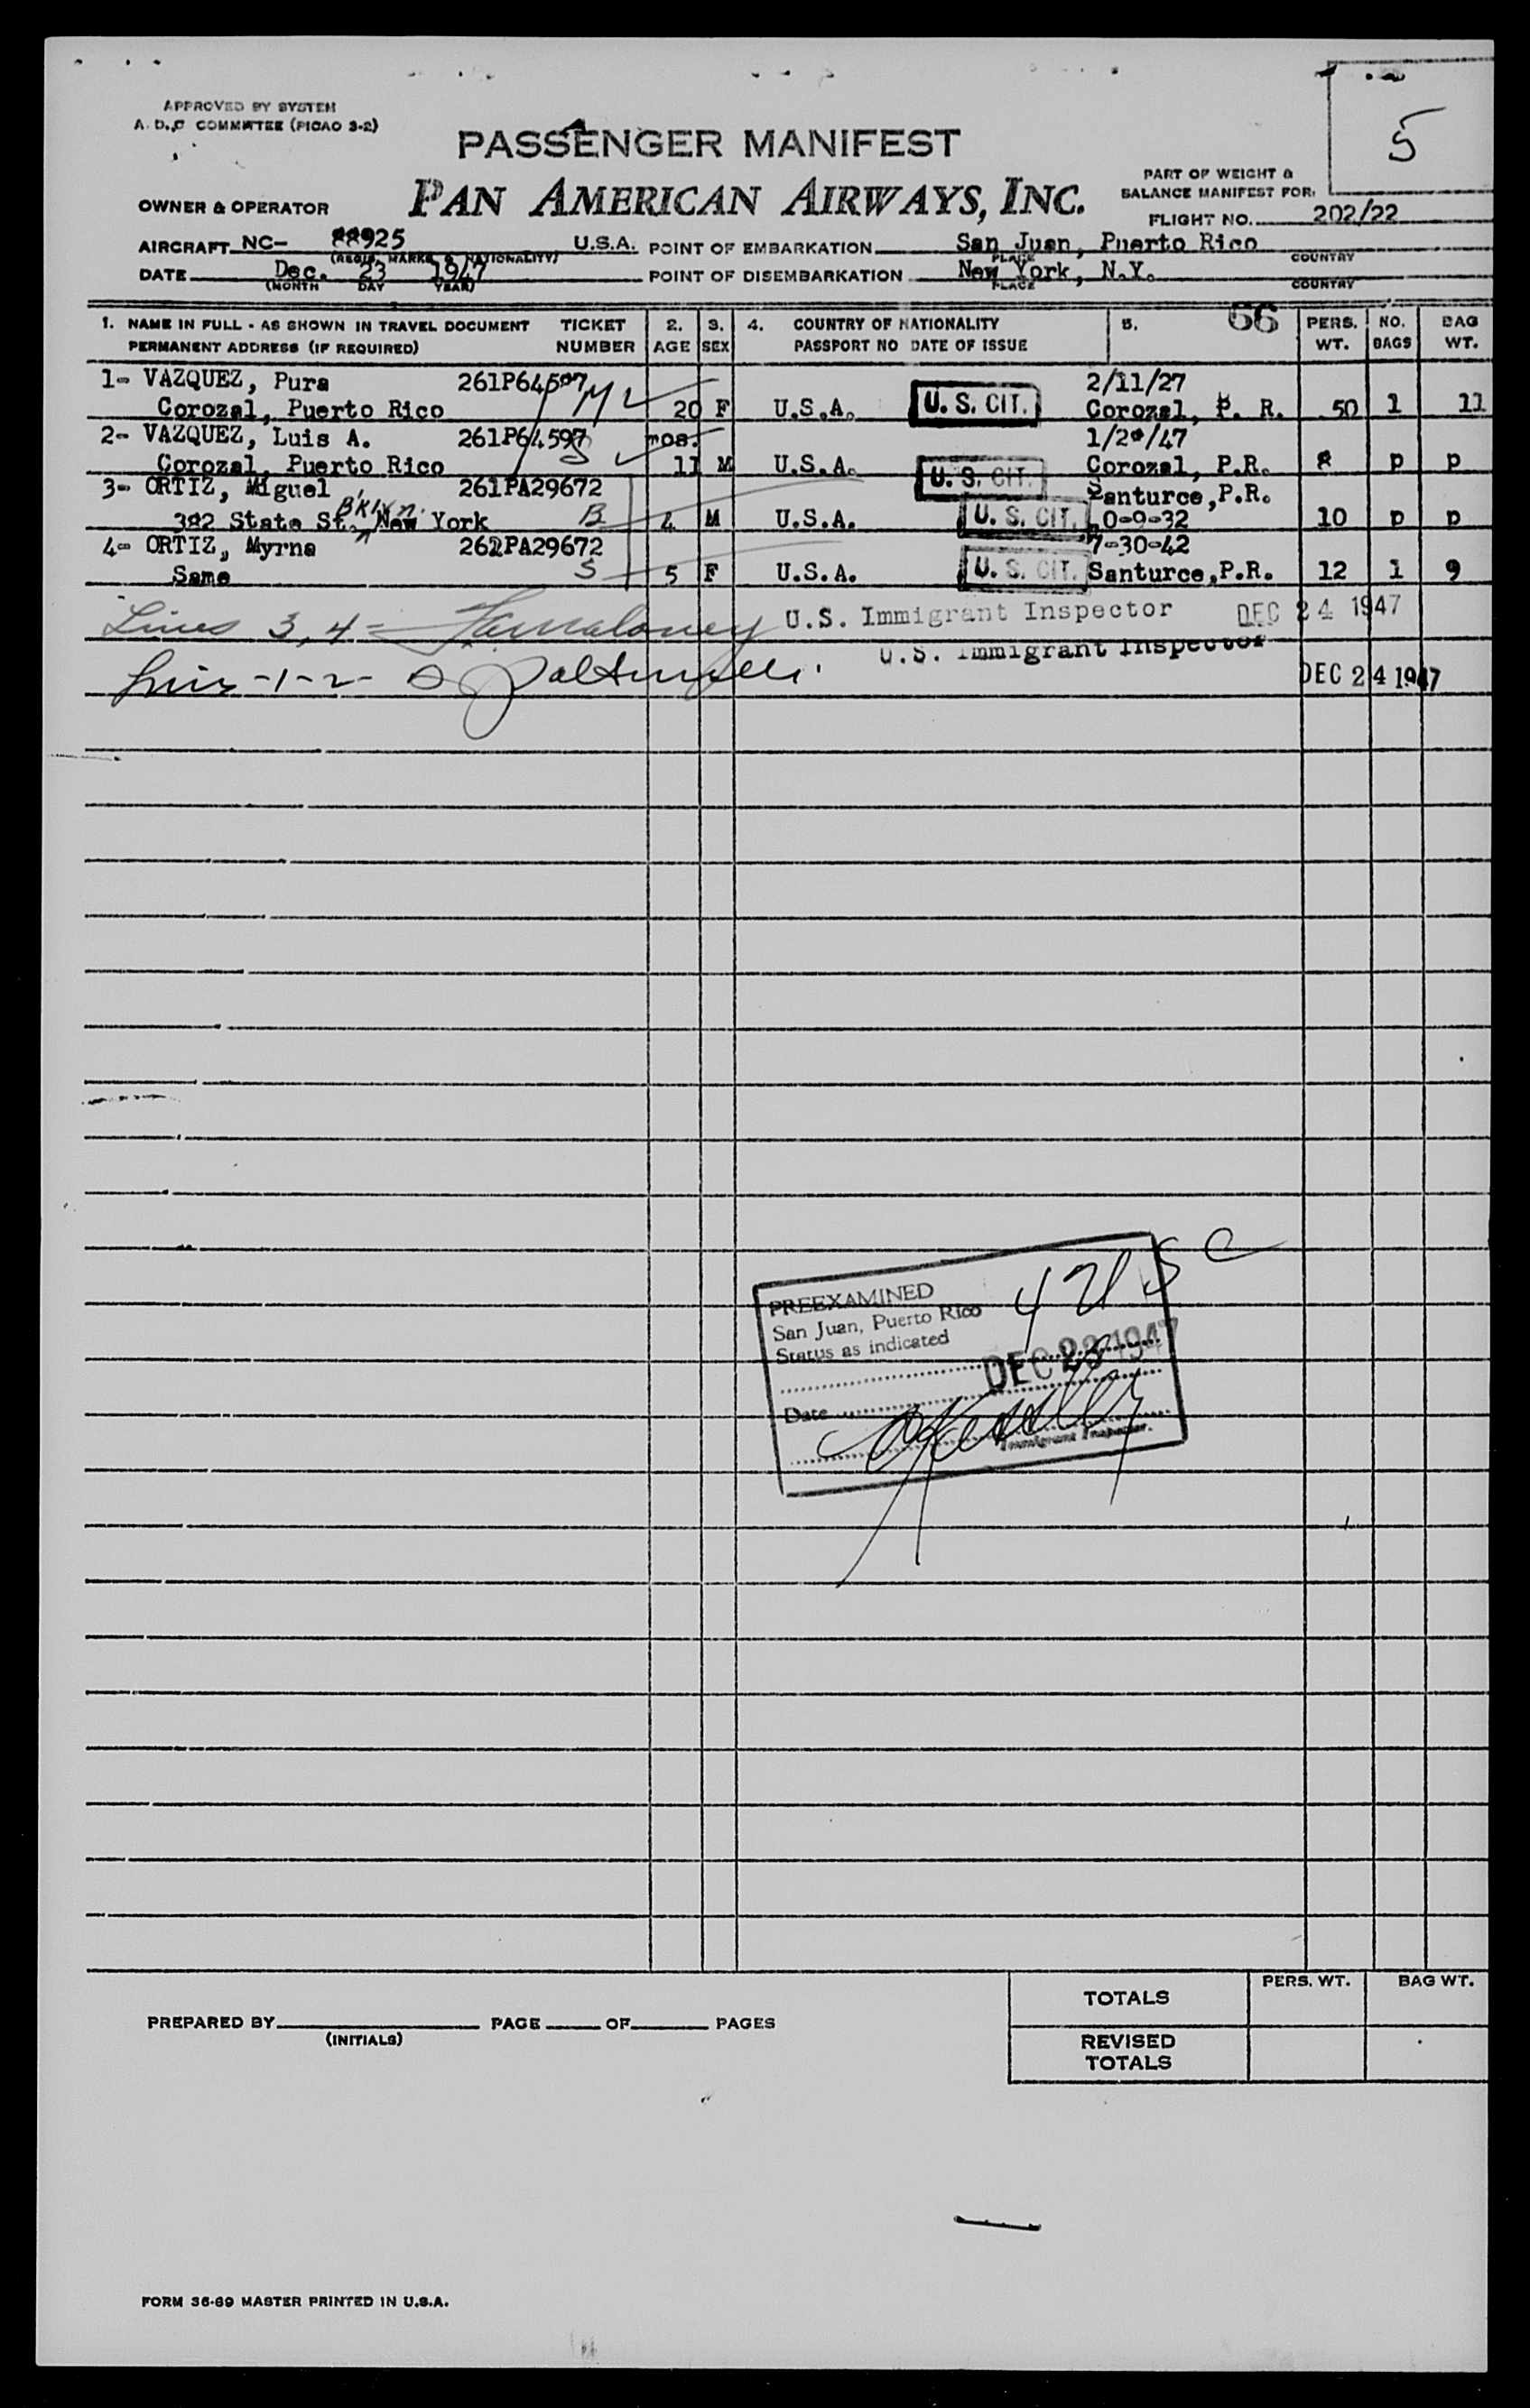 APPROVED BY SYSTEM
A.D.P COMMITTEE (PICAO 3-2)
5
PASSENGER MANIFEST
PAN AMERICAN AIRWAYS, INC.
PART OF WEIGHT &
BALANCE MANIFEST FOR:
OWNER & OPERATOR
FLIGHT NO. 202/22
AIRCRAFT NC- 88925 U.S.A. POINT OF EMBARKATION San Juan, Puerto Rico
(REGIS. MARKS & NATIONALITY) PLACE COUNTRY
DATE Dec. 23 1947 POINT OF DISEMBARKATION New York, N.Y.
(MONTH DAY YEAR) PLACE COUNTRY
1. NAME IN FULL - AS SHOWN IN TRAVEL DOCUMENT TICKET 2. 3. 4. COUNTRY OF NATIONALITY 5. 66 PERS. NO. BAG
PERMANENT ADDRESS (IF REQUIRED) NUMBER AGE SEX PASSPORT NO DATE OF ISSUE WT. BAGS WT.
1- VAZQUEZ, Pura 261P64597 M 2/11/27
Corozal, Puerto Rico 20 F U.S.A. U.S. CIT. Corozal, P. R. 50 1 11
2- VAZQUEZ, Luis A. 261P64597 S mos. /47
Corozal, Puerto Rico 11 M U.S.A. U.S. CIT. Corozal, P.R. 8 p p
3- ORTIZ, Miguel 261PA29672 Santurce, P.R.
382 State St., B'klyn. New York B 4 M U.S.A. U.S. CIT. 0-9-32 10 p p
4- ORTIZ, Myrna 262PA29672 7-30-42
Same S 5 F U.S.A. U.S. CIT. Santurce, P.R. 12 1 9
Lines 3, 4 - U.S. Immigrant Inspector DEC 24 1947
U.S. Immigrant Inspector
Lines -1-2- DEC 24 1947
4 USC
PREEXAMINED
San Juan, Puerto Rico
Status as indicated
DEC 23 1947
Date
Immigrant Inspector.
PERS. WT. BAG WT.
TOTALS
PREPARED BY PAGE OF PAGES
(INITIALS)
REVISED
TOTALS
FORM 36-69 MASTER PRINTED IN U.S.A.